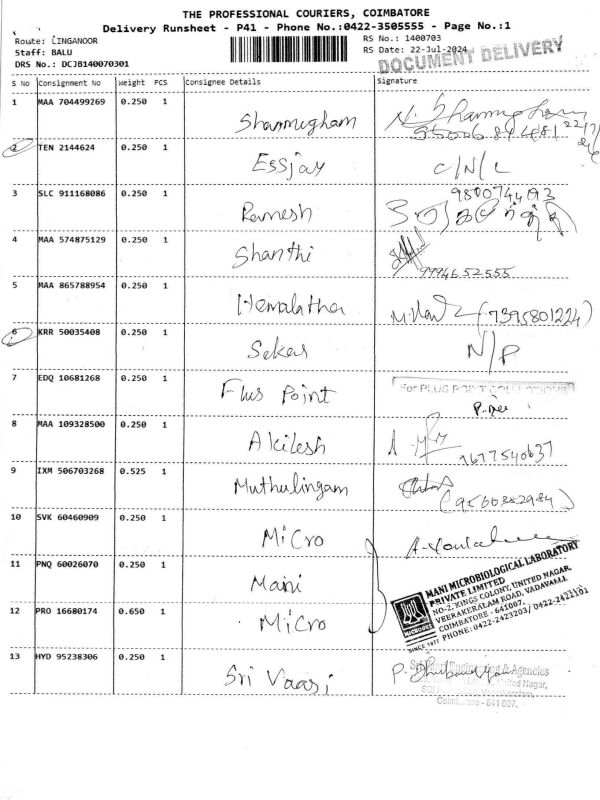 THE PROFESSIONAL COURIERS, COIMBATORE
Delivery Runsheet - P41 - Phone No.:0422-3505555 - Page No.:1
Route: LINGANOOR
Staff: BALU
DRS No.: DCJB140070301
RS No.: 1400703
RS Date: 22-Jul-2024
DOCUMENT DELIVERY
S No Consignment No Weight PCS Consignee Details Signature
1 MAA 704499269 0.250 1 Shanmugham N. Shanmugham
2 TEN 2144624 0.250 1 Essjay C/N/L
3 SLC 911168086 0.250 1 Ramesh
4 MAA 574875129 0.250 1 Shanthi
9994652555
5 MAA 865788954 0.250 1 Hemalatha (7395801224)
6 KRR 50035408 0.250 1 Sekar N/P
7 EDQ 10681268 0.250 1 Plus Point For PLUS POINT
8 MAA 109328500 0.250 1 Akilesh
9 IXM 506703268 0.525 1 Muthulingam
10 SVK 60460909 0.250 1 Micro
11 PNQ 60026070 0.250 1 Mani
12 PRO 16680174 0.650 1 Micro
MANI MICROBIOLOGICAL LABORATORY
PRIVATE LIMITED
NO-2, KINGS COLONY, UNITED NAGAR,
VEERAKERALAM ROAD, VADAVALLI,
COIMBATORE - 641007.
PHONE: 0422-2423203 / 0422-2422101
SINCE 1977
13 HYD 95238306 0.250 1 Sri Vaari
Engineering & Agencies
United Nagar,
Coimbatore - 641 007.